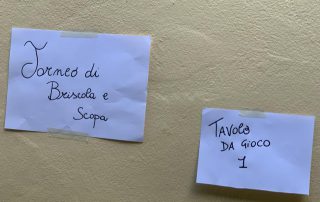 Torneo di
Briscola e
Scopa
TAVOLO
DA GIOCO
1